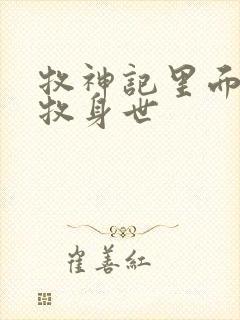 牧神記里而
牧身世
崔善紅